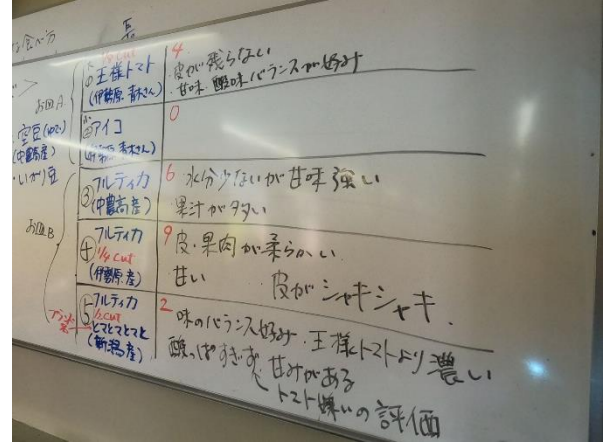 な食べ方
長
お皿A
空豆(ゆで)
(中農高産)
お皿B
1/8 cut
①王様トマト
(伊勢原 青木さん)
4
・皮が残らない
・甘味・酸味バランスが好み
②アイコ
(伊勢原 青木さん)
0
③フルティカ
(中農高産)
6
水分少ないが甘味強い
果汁が多い
④フルティカ
1/4 cut
(伊勢原産)
9
皮・果肉が柔らかい
甘い 皮がシャキシャキ.
⑤フルティカ
1/2 cut
ブランド名→とマとマとマと
(新潟産)
2
味のバランス好み・王様トマトより濃い
酸っぱすぎず甘みがある
トマト嫌いの評価